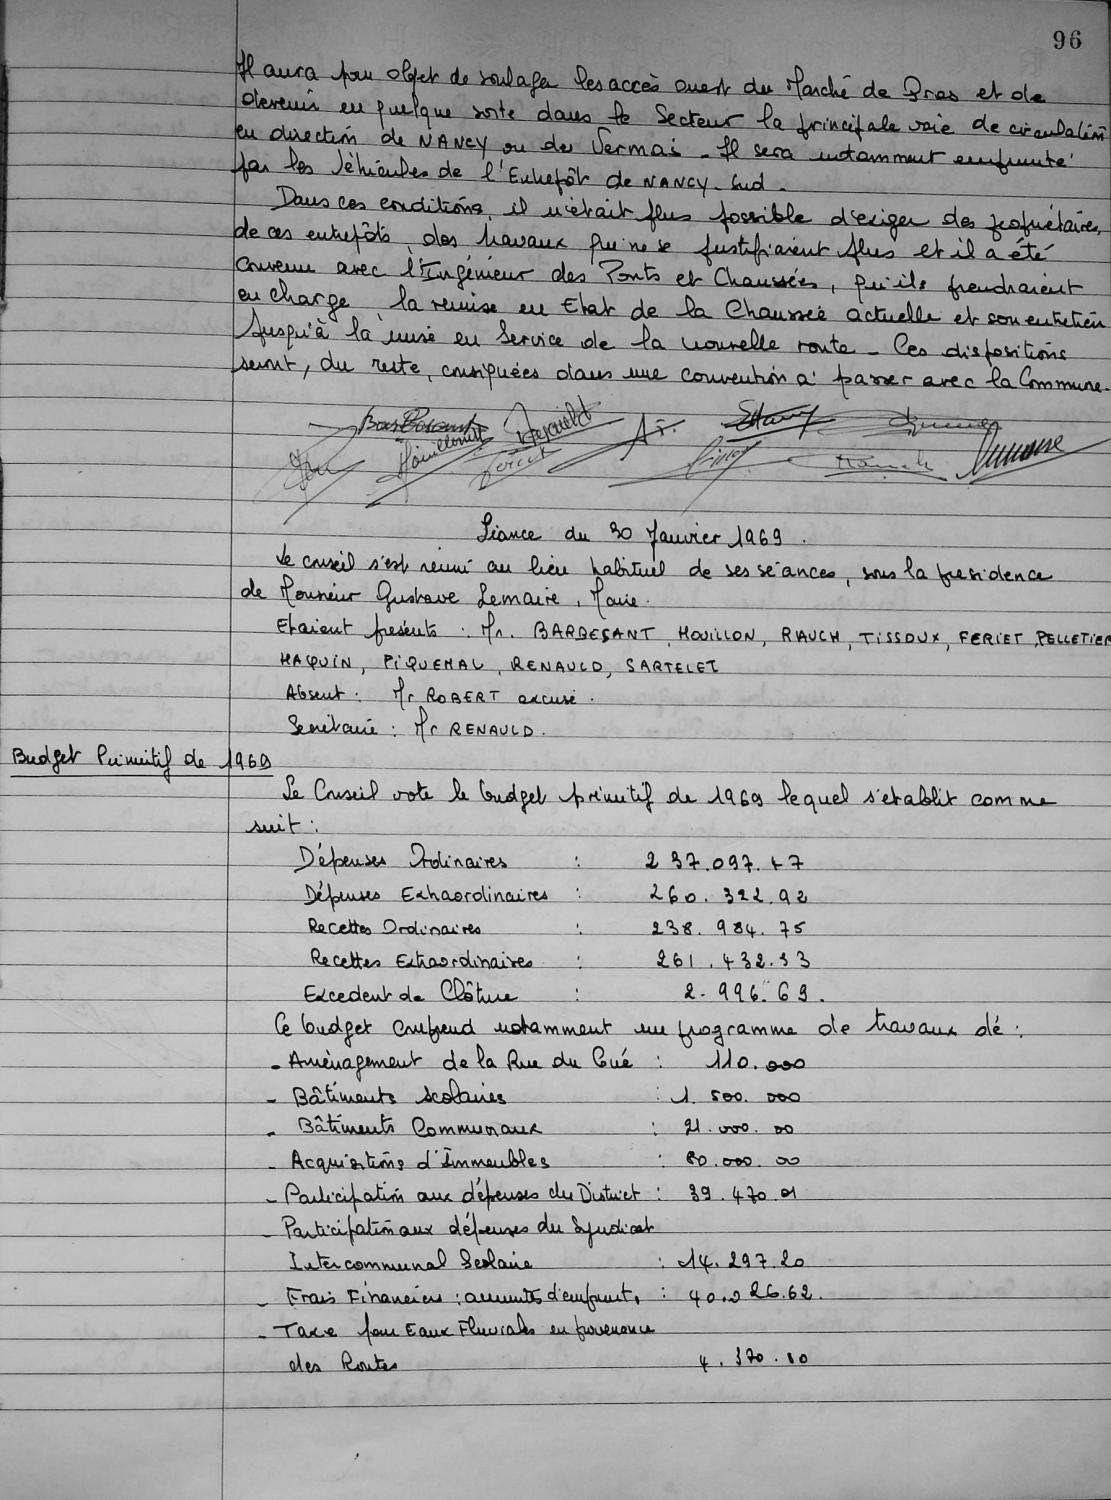 96
Il aura pour objet de soulager les accès ouest du Marché de Gros et de
devenir en quelque sorte dans le Secteur la principale voie de circulation
en direction de NANCY ou de Vermai. Il sera notamment emprunté
par les Véhicules de l'Entrepôt de NANCY-Sud.
Dans ces conditions, il n'était plus possible d'exiger des propriétaires,
de ces entrepôts, des travaux qui ne se justifiaient plus et il a été
convenu avec l'Ingénieur des Ponts et Chaussées, qu'ils prendraient
en charge, la remise en Etat de la Chaussée actuelle et son entretien
jusqu'à la mise en Service de la nouvelle route - Ces dispositions
seront, du reste, consignées dans une convention à passer avec la Commune.
Séance du 30 Janvier 1969.
Le conseil s'est réuni au lieu habituel de ses séances, sous la présidence
de Monsieur Gustave Lemaire, Maire.
Etaient présents : Mr. BARBESANT, HOUILLON, RAUCH, TISSOUX, FERIET, PELLETIER
HAQUIN, PIQUEMAL, RENAULD, SARTELET
Absent : Mr ROBERT excusé.
Secrétaire : Mr RENAULD.
Budget Primitif de 1969
Le Conseil vote le budget primitif de 1969 lequel s'établit comme
suit :
Dépenses Ordinaires : 237.097.47
Dépenses Extraordinaires : 260.322.92
Recettes Ordinaires : 238.984.75
Recettes Extraordinaires : 261.432.33
Excedent de Clôture : 2.996.69.
Ce budget comprend notamment un programme de travaux de :
- Aménagement de la Rue du Gué : 110.000
- Bâtiments scolaires : 1.500.000
- Bâtiments Communaux : 21.000.00
- Acquisitions d'Immeubles : 80.000.00
- Participation aux dépenses du District : 39.470.01
- Participation aux dépenses du Syndicat
Intercommunal Scolaire : 14.297.20
- Frais Financiers : annuités d'emprunt, : 40.026.62.
- Taxe pour Eaux Pluviales en provenance
des Routes 4.370.80